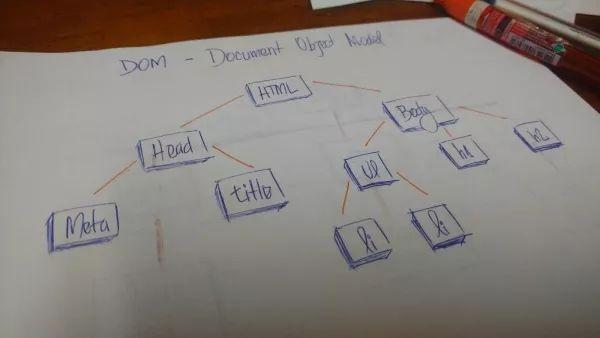 DOM - Document Object Model
HTML
Head
Body
Meta
title
Ul
h1
h2
li
li